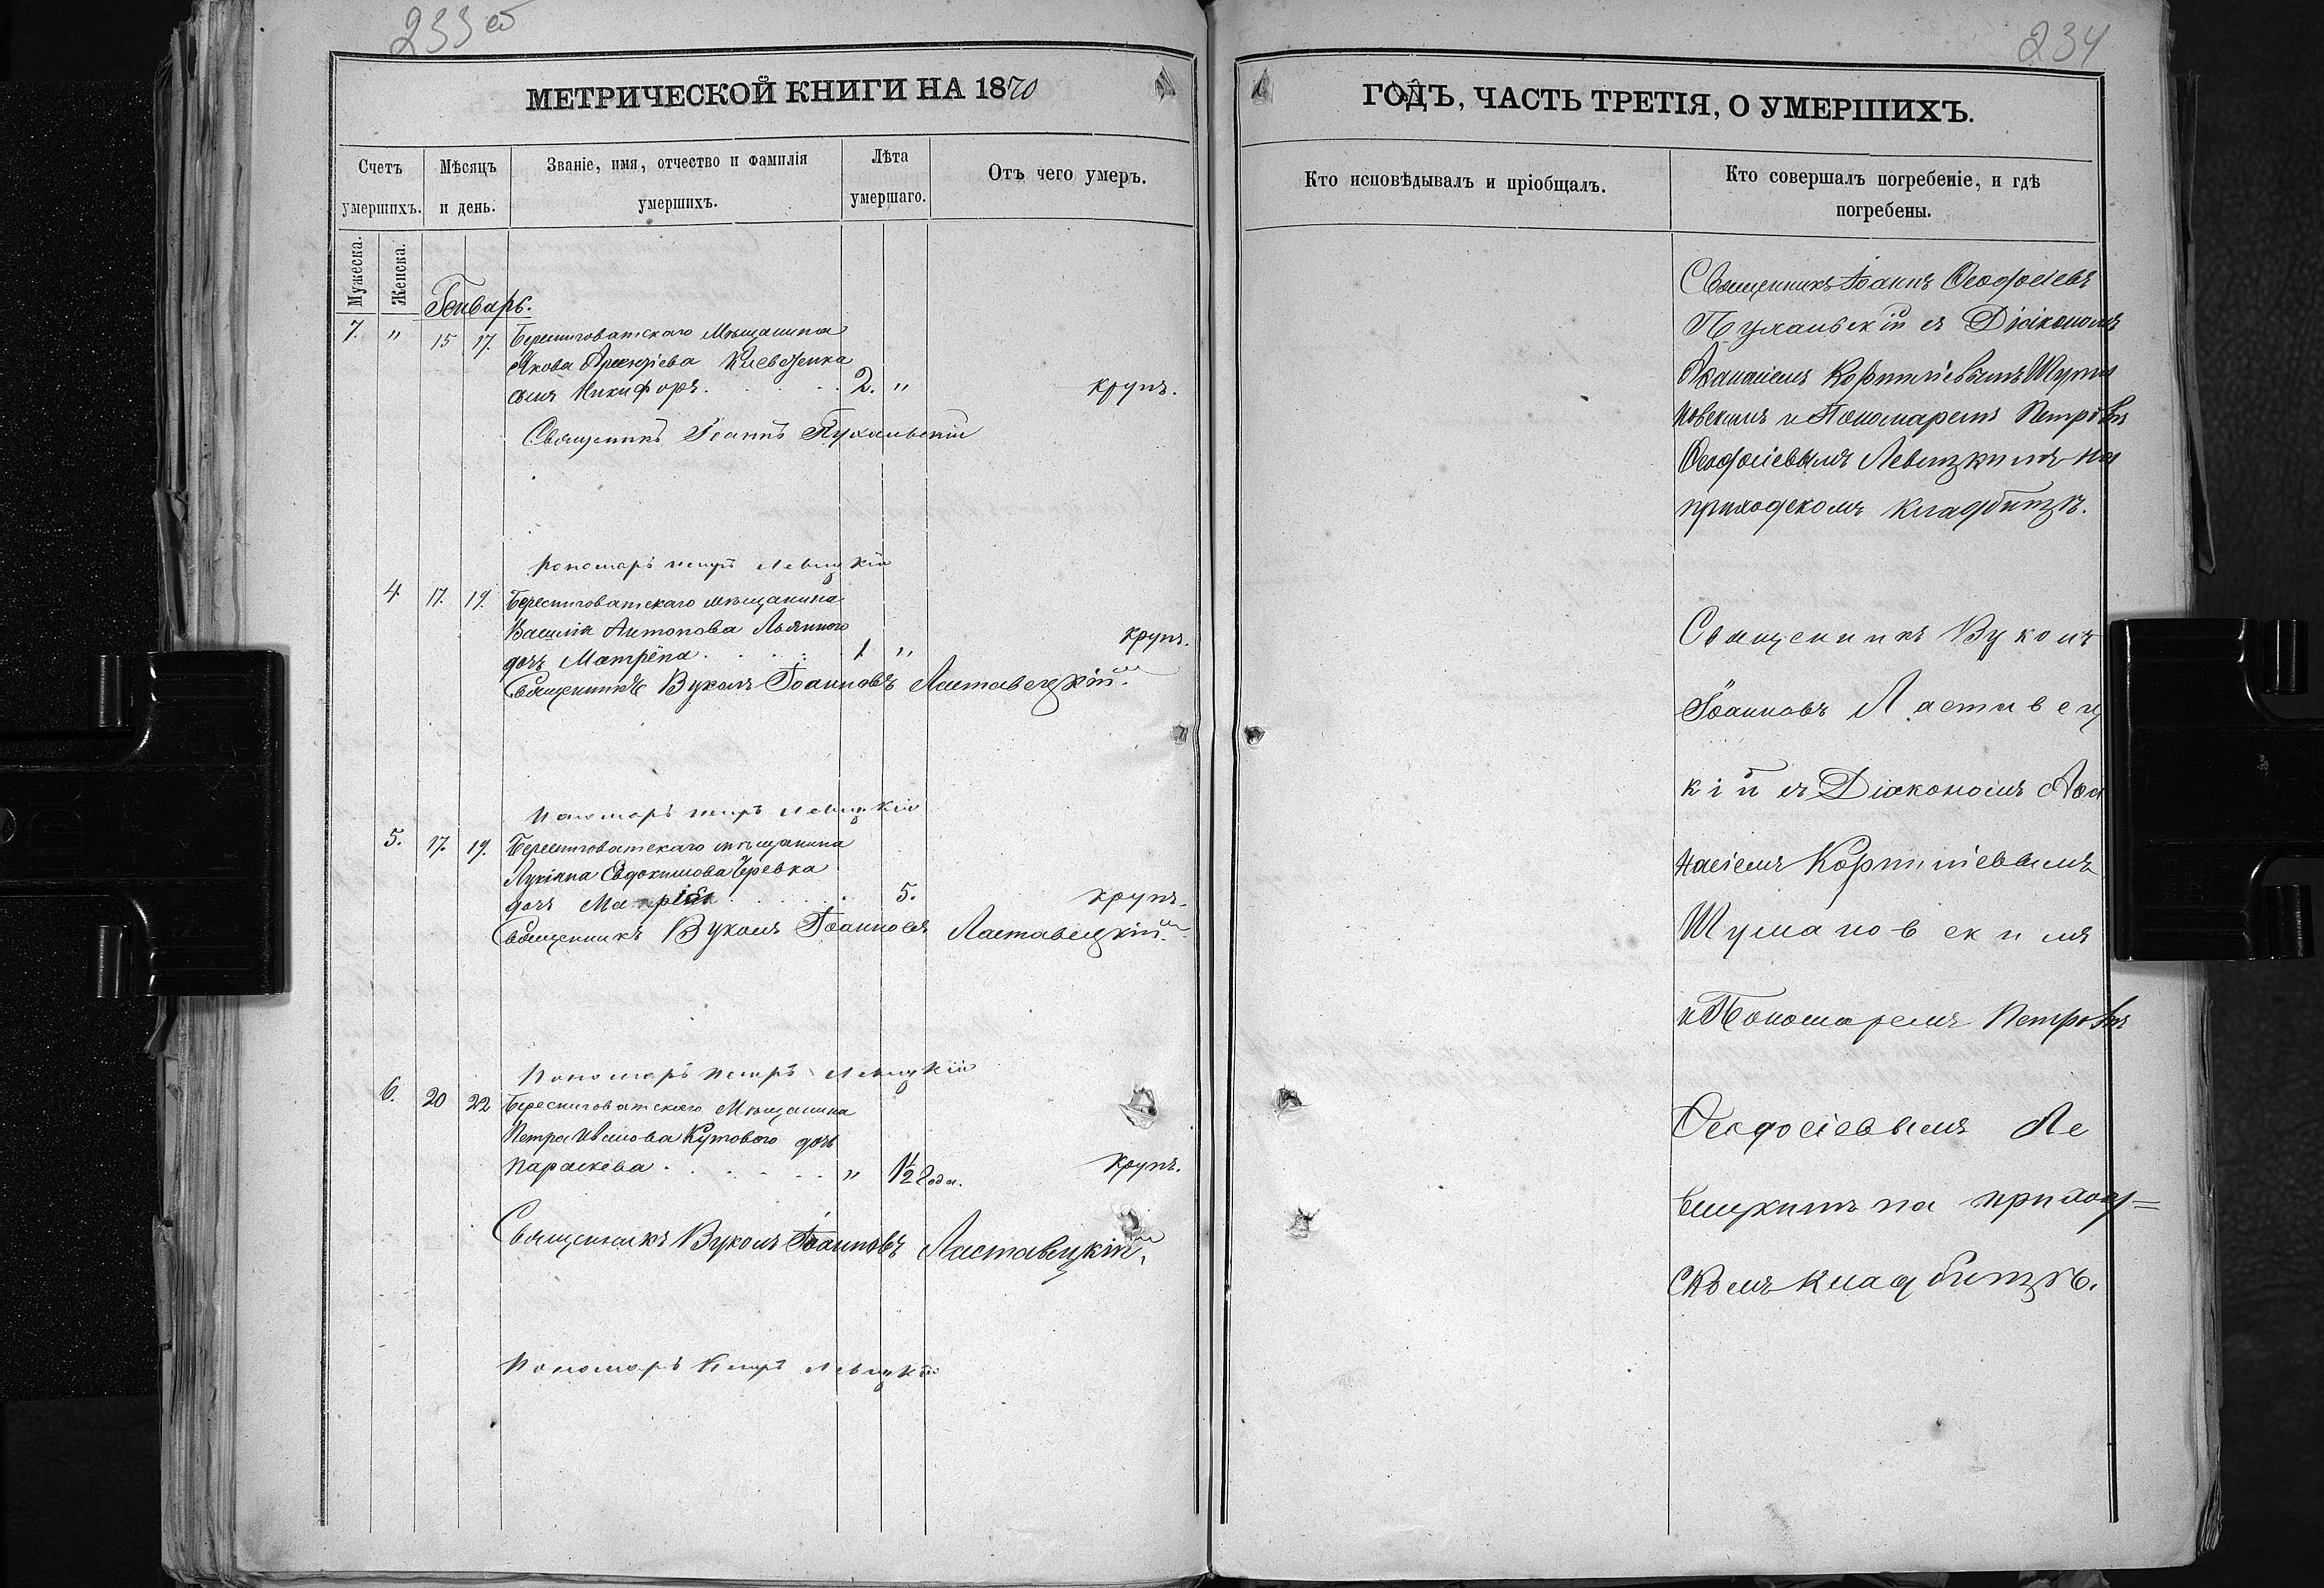 233 об
234
МЕТРИЧЕСКОЙ КНИГИ НА 1870
ГОДЪ, ЧАСТЬ ТРЕТІЯ, О УМЕРШИХЪ.
Счетъ умершихъ.
Мѣсяцъ и день.
Званіе, имя, отчество и фамилія умершихъ.
Лѣта умершаго.
Отъ чего умеръ.
Кто исповѣдывалъ и пріобщалъ.
Кто совершалъ погребеніе, и гдѣ погребены.
Мужеска.
Женска.
Генварь.
7. " 15 17. Берестоватскаго Мѣщанина
Якова
сынъ Никифоръ. 2. " крупъ.
Священникъ Іоаннъ Пухальскій
Пономарь Петръ Левицкій
4 17. 19. Берестоватскаго мѣщанина
Василія Антонова
дочь Матрёна. 1 " крупъ.
Священникъ Вуколъ Іоанновъ Ластавецкій.
Пономарь Петръ Левицкій
5. 17. 19. Берестоватскаго мѣщанина
Лукіана Евдокимова Черевка
дочь Марія 5. крупъ.
Священникъ Вуколъ Іоанновъ Ластавецкій.
Пономарь Петръ Левицкій
6. 20 22 Берестоватскаго Мѣщанина
Петра Иванова Кутового дочь
Параскева. " 1/2 Года. крупъ.
Священникъ Вуколъ Іоанновъ Ластавецкій.
Пономарь Петръ Левицкій
Священникъ Іоаннъ Ѳеодосіевъ
Пухальскій съ Діакономъ
Аѳанасіемъ Корниліевымъ Шума
новскимъ и Пономаремъ Петромъ
Ѳеодосіевымъ Левицкимъ на
приходскомъ кладбищѣ.
Священникъ Вуколъ
Іоанновъ Ластавец
кій съ Діакономъ Аѳа
насіемъ Корниліевымъ
Шумановскимъ
и Пономаремъ Петромъ
Ѳеодосіевымъ Ле
вицкимъ на приход=
скомъ кладбищѣ.